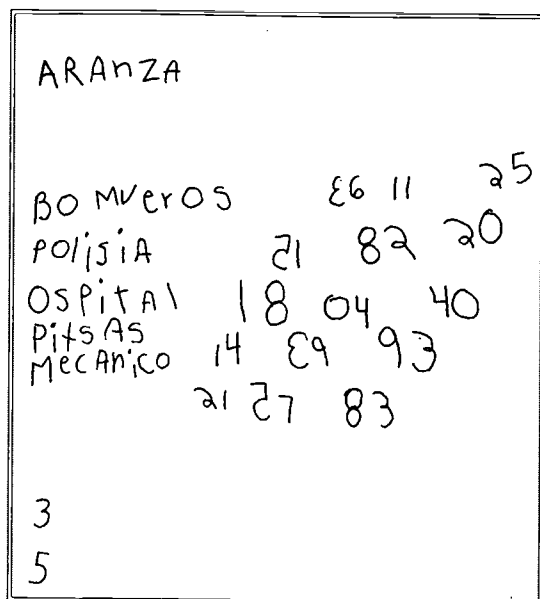 ARAnZA
BO MverOS 36 11 25
POlisiA 51 82 20
OSPitAl 18 04 40
PitSAS
MecAnico 14 39 93
21 57 83
3
5